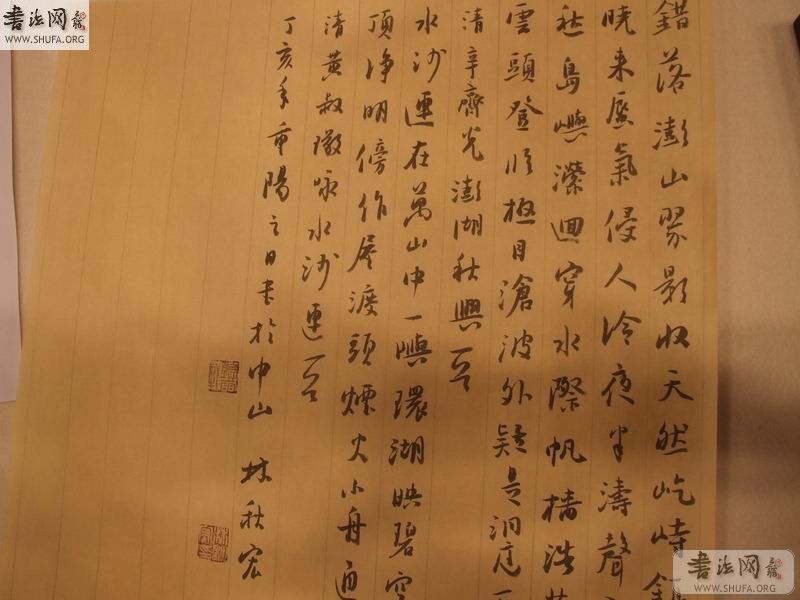 錯落澎山翠影收天然屹峙鎮
曉來蜃氣侵人冷夜半濤聲
愁島嶼瀠迴穿水際帆檣浩
雲頭登臨極目滄波外疑是洞庭
清辛齊光澎湖秋興一首
水沙連在萬山中一嶼環湖映碧空
頂淨明傍作屋渡頭煙火小舟通
清黃叔璥咏水沙連一首
丁亥年重陽之日書於中山 林秋宏
書法网
WWW.SHUFA.ORG
書法网
WWW.SHUFA.ORG